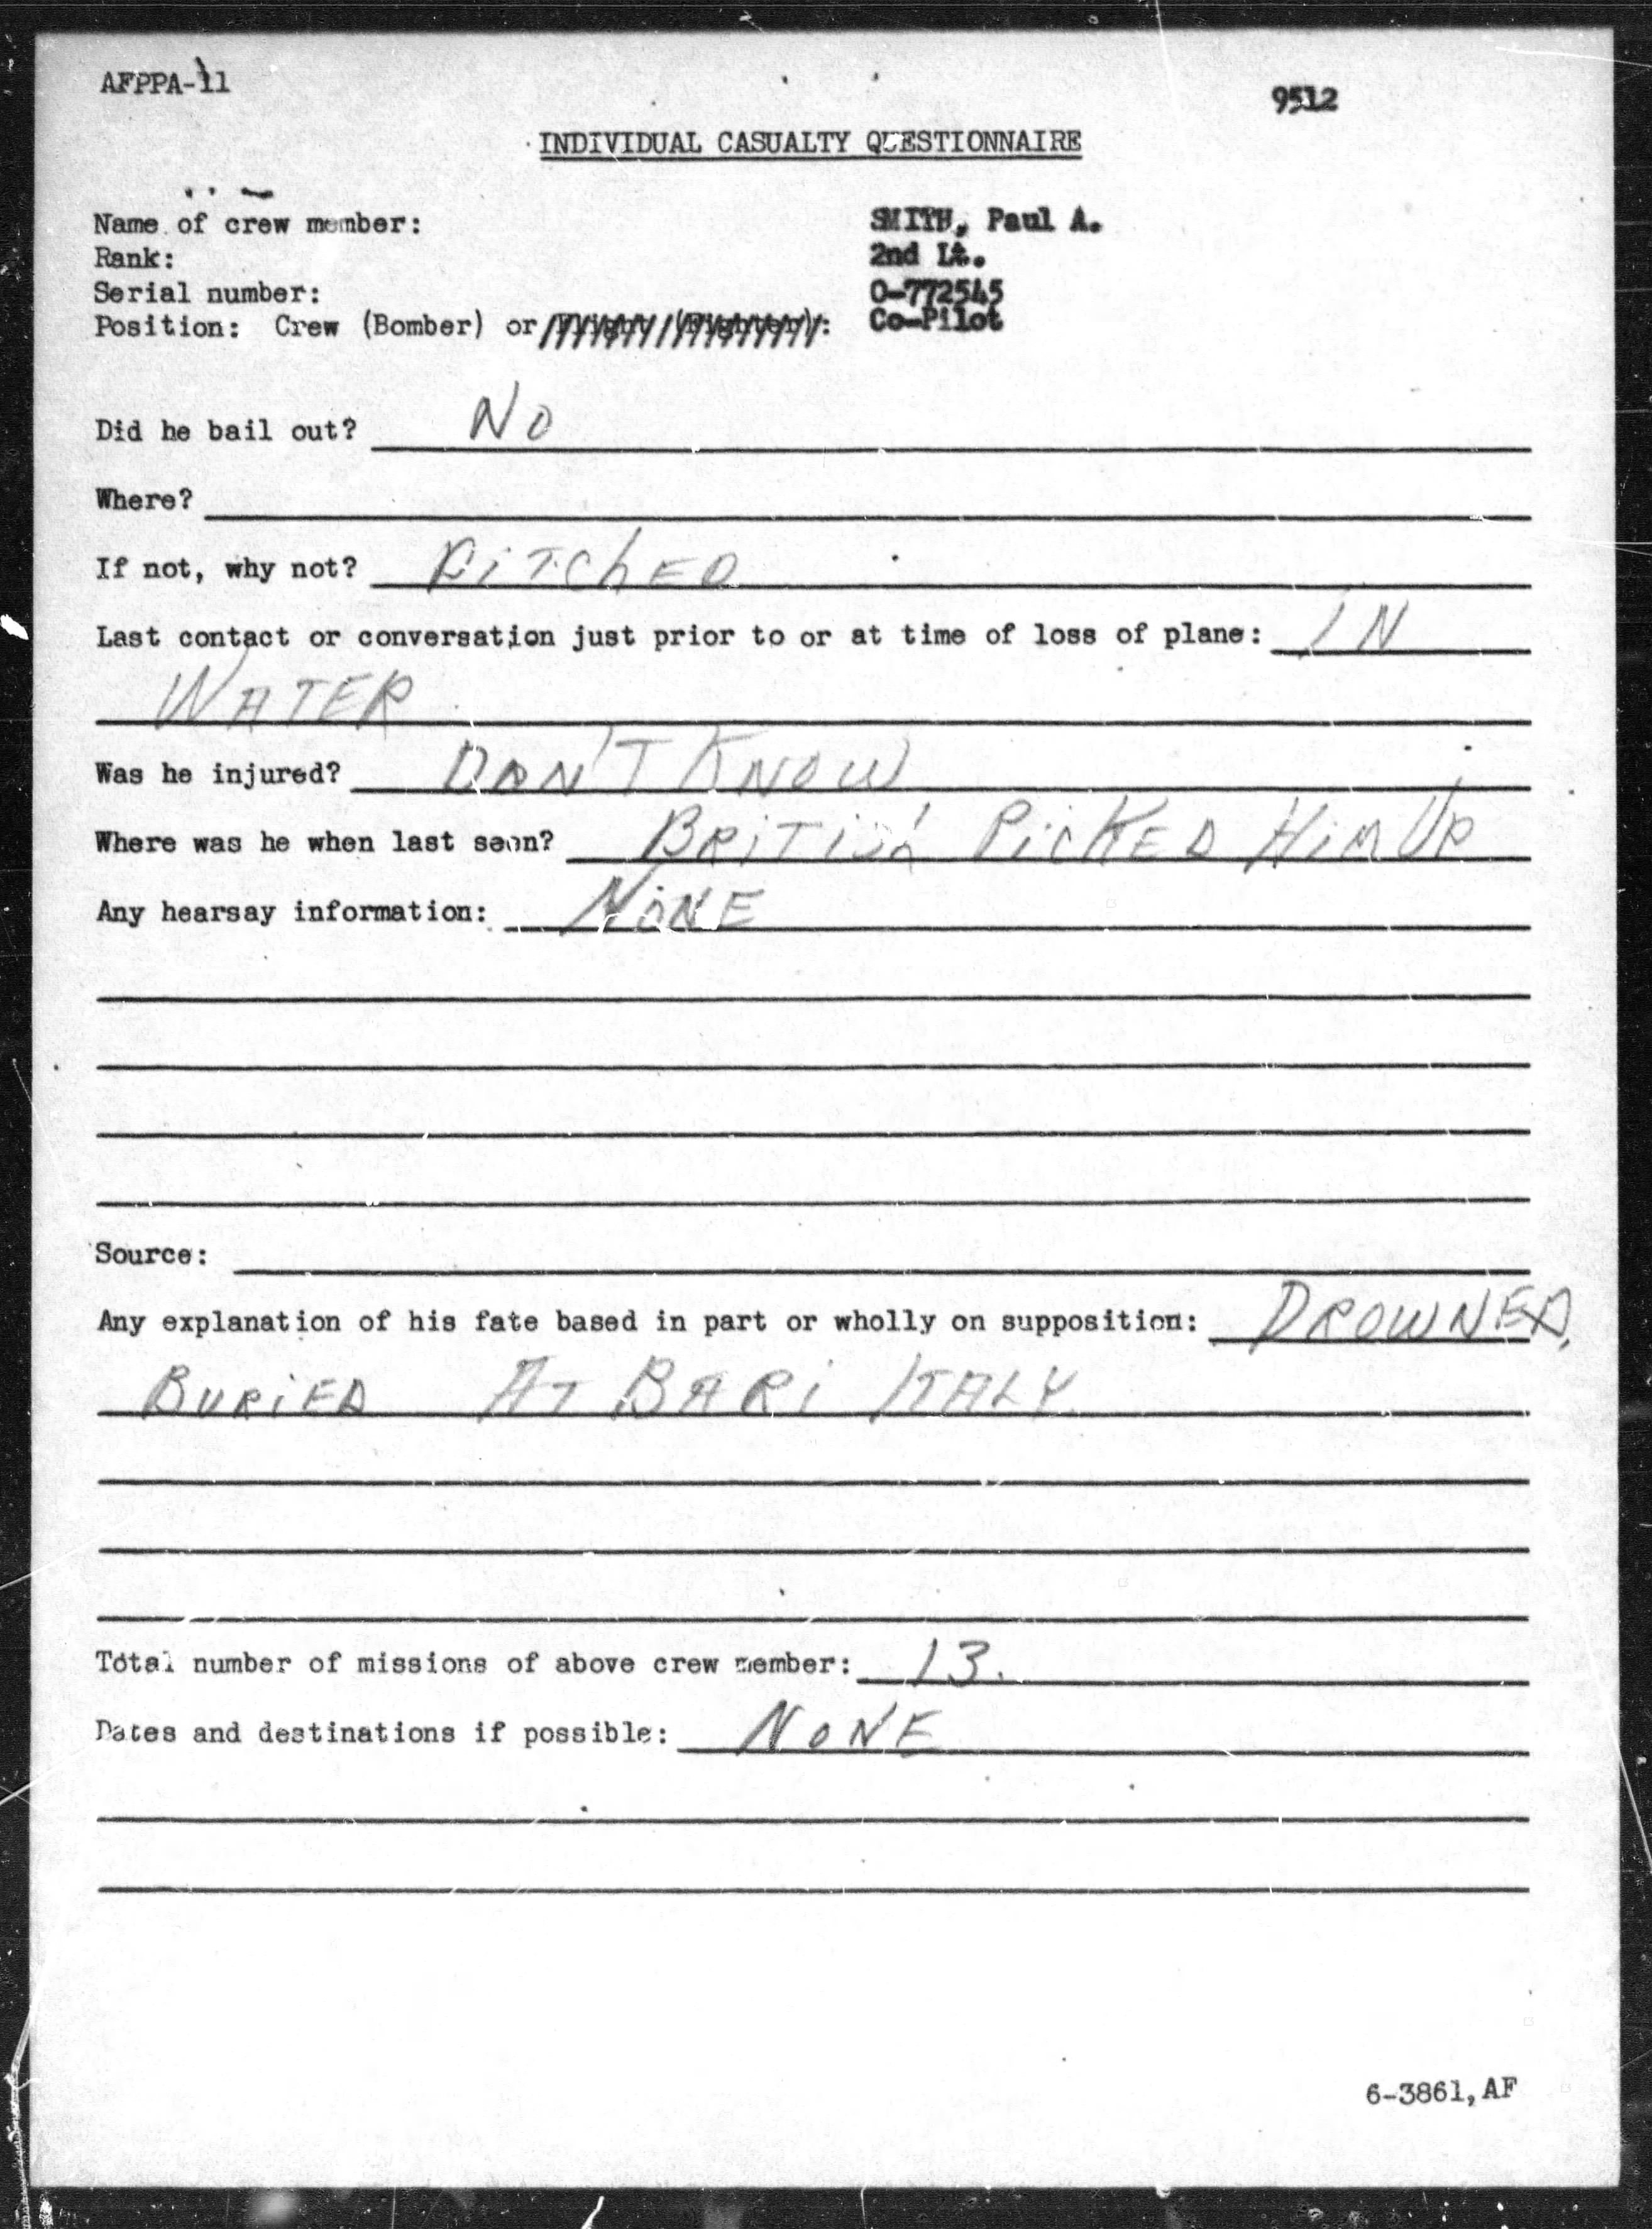 AFPPA-11
9512
INDIVIDUAL CASUALTY QUESTIONNAIRE
Name of crew member: SMITH, Paul A.
Rank: 2nd Lt.
Serial number: O-772545
Position: Crew (Bomber) or Flight (Fighter): Co-Pilot
Did he bail out? NO
Where?
If not, why not? DITCHED
Last contact or conversation just prior to or at time of loss of plane: IN
WATER
Was he injured? DON'T KNOW
Where was he when last seen? BRITISH PICKED HIM UP
Any hearsay information: NONE
Source:
Any explanation of his fate based in part or wholly on supposition: DROWNED,
BURIED AT BARI ITALY
Total number of missions of above crew member: 13.
Dates and destinations if possible: NONE
6-3861, AF